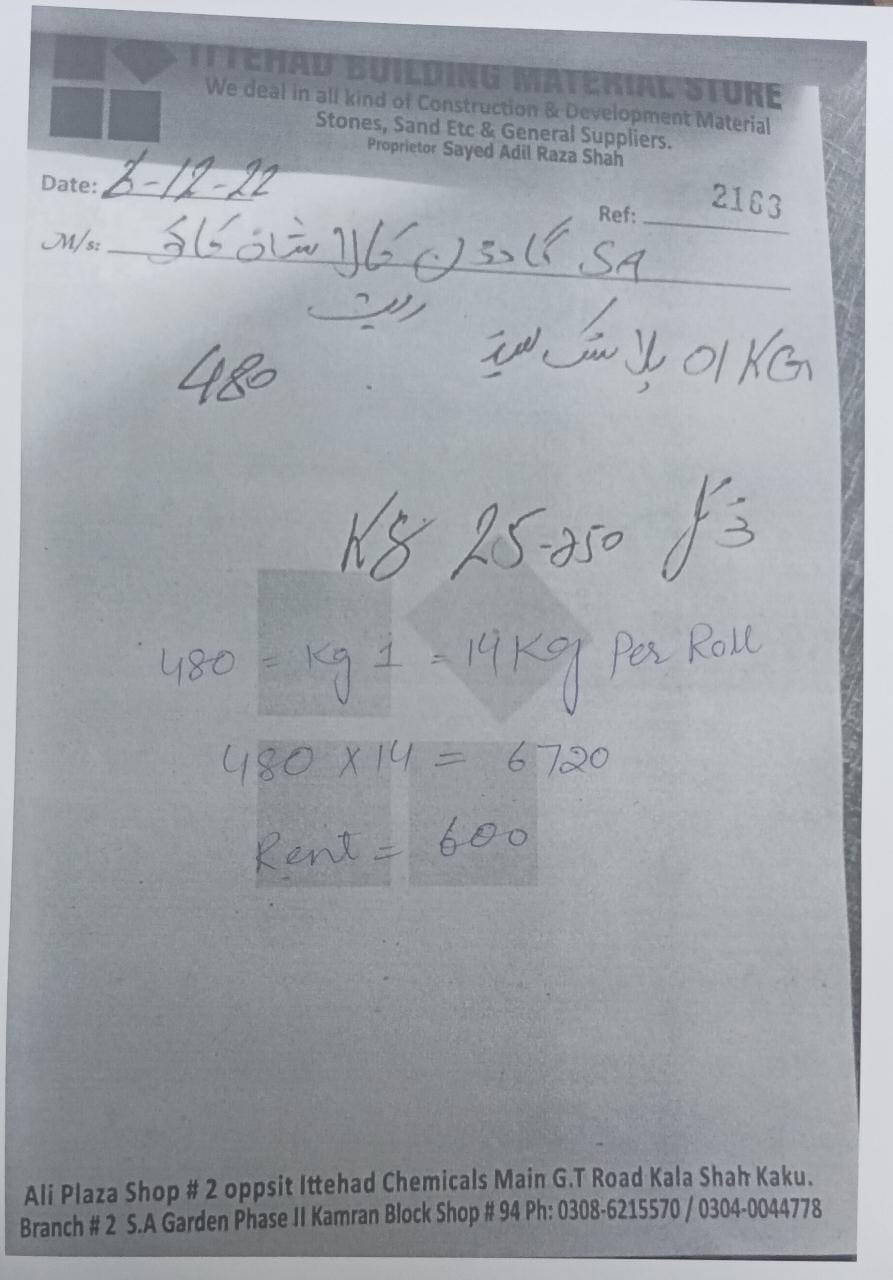 ITTEHAD BUILDING MATERIAL STORE
We deal in all kind of Construction & Development Material
Stones, Sand Etc & General Suppliers.
Proprietor Sayed Adil Raza Shah
Date: -12-22
Ref: 2163
M/s: SA گارڈن کالا شاہ کاکو
ریٹ
01 KG پلاسٹک سیٹ
480
Kg 25-250
480 = Kg 1 = 14 Kg Per Roll
480 X 14 = 6720
Rent = 600
Ali Plaza Shop # 2 oppsit Ittehad Chemicals Main G.T Road Kala Shah Kaku.
Branch # 2 S.A Garden Phase II Kamran Block Shop # 94 Ph: 0308-6215570 / 0304-0044778